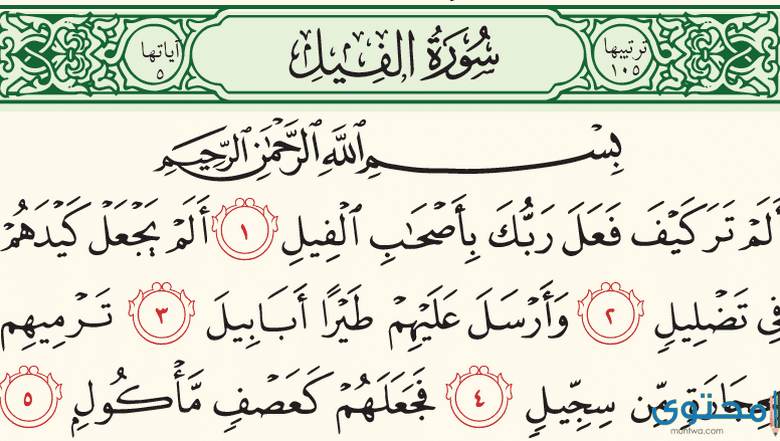 ترتيبها ١٠٥ سُورَةُ الفِيلِ آياتها ٥
بِسْمِ اللَّهِ الرَّحْمَٰنِ الرَّحِيمِ
أَلَمْ تَرَ كَيْفَ فَعَلَ رَبُّكَ بِأَصْحَٰبِ ٱلْفِيلِ ١ أَلَمْ يَجْعَلْ كَيْدَهُمْ
فِي تَضْلِيلٍ ٢ وَأَرْسَلَ عَلَيْهِمْ طَيْرًا أَبَابِيلَ ٣ تَرْمِيهِم
بِحِجَارَةٍ مِّن سِجِّيلٍ ٤ فَجَعَلَهُمْ كَعَصْفٍ مَّأْكُولٍ ٥
محتوى
montwa.com